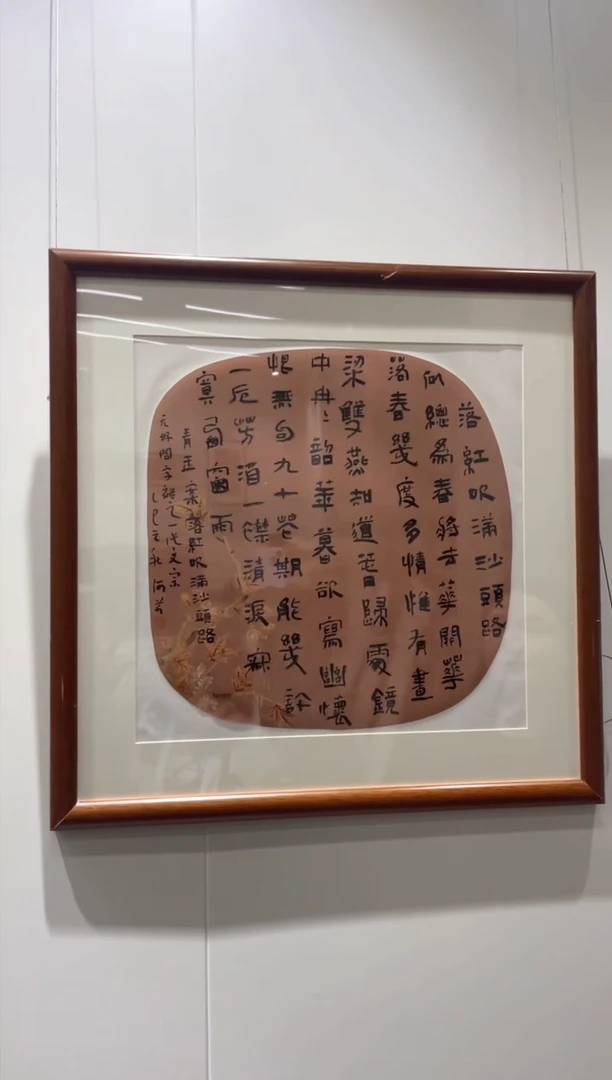 落紅吹滿沙頭路
似總為春將去華開華
落春幾度多情惟有畫
梁雙燕知道萅歸處鏡
中冉〻韶華暮欲寫幽懷
恨無句九十華期能幾許
一卮芳酒一襟清淚寂
寞西窗雨
青玉案落紅吹滿沙頭路
元好問字裕之一代文宗
乙巳之秋